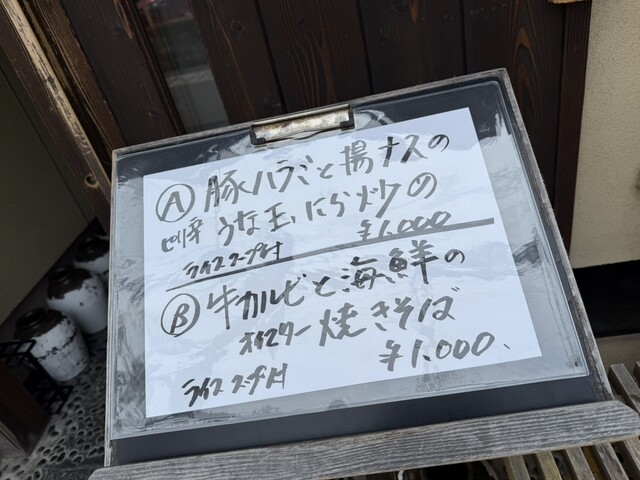 Ⓐ 豚ハラミと揚ナスの
ピリ辛 うな玉、にら炒めの
ライススープ付 ¥1.000
Ⓑ 牛カルビと海鮮の
オイスター焼きそば
¥1.000.
ライススープ付